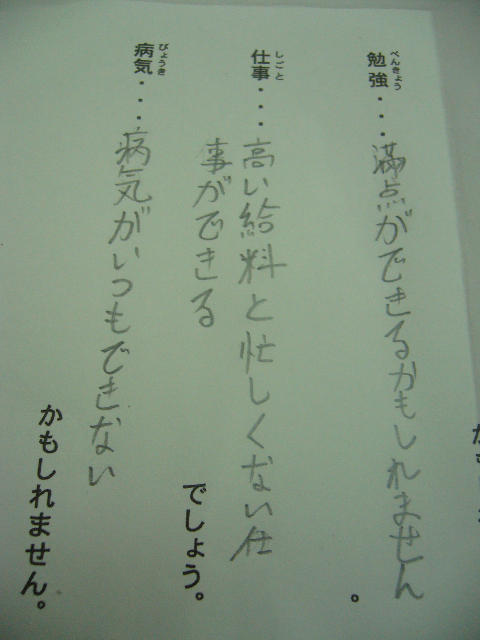 勉強・・・満点ができるかもしれません。
べんきょう
仕事・・・高い給料と忙しくない仕
しごと
事ができるでしょう。
病気・・・病気がいつもできない
びょうき
かもしれません。